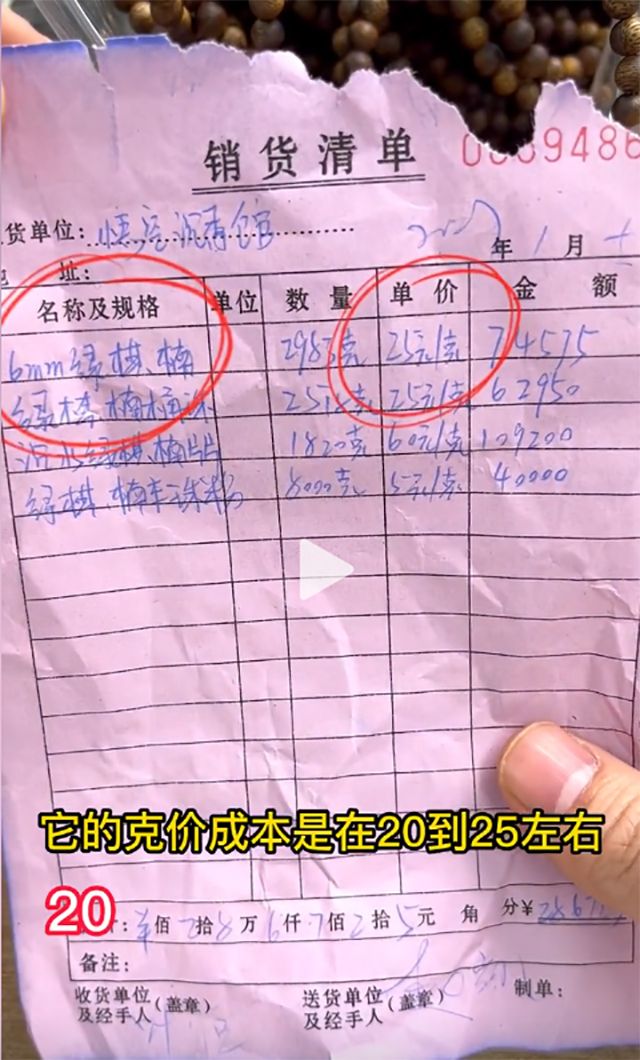 销货清单
货单位: 沉香馆
年 1 月
址:
名称及规格 单位 数量 单价 金额
6mm绿棋楠 2983克 25元/克 74575
绿棋楠 25元/克 62950
沉水绿棋楠 1820克 60元/克 109200
绿棋楠 8000克 5元/克 40000
它的克价成本是在20到25左右
20
佰 2拾8万6仟7佰2拾5元 角 分¥
备注:
收货单位
及经手人(盖章)
送货单位
及经手人(盖章)
制单: